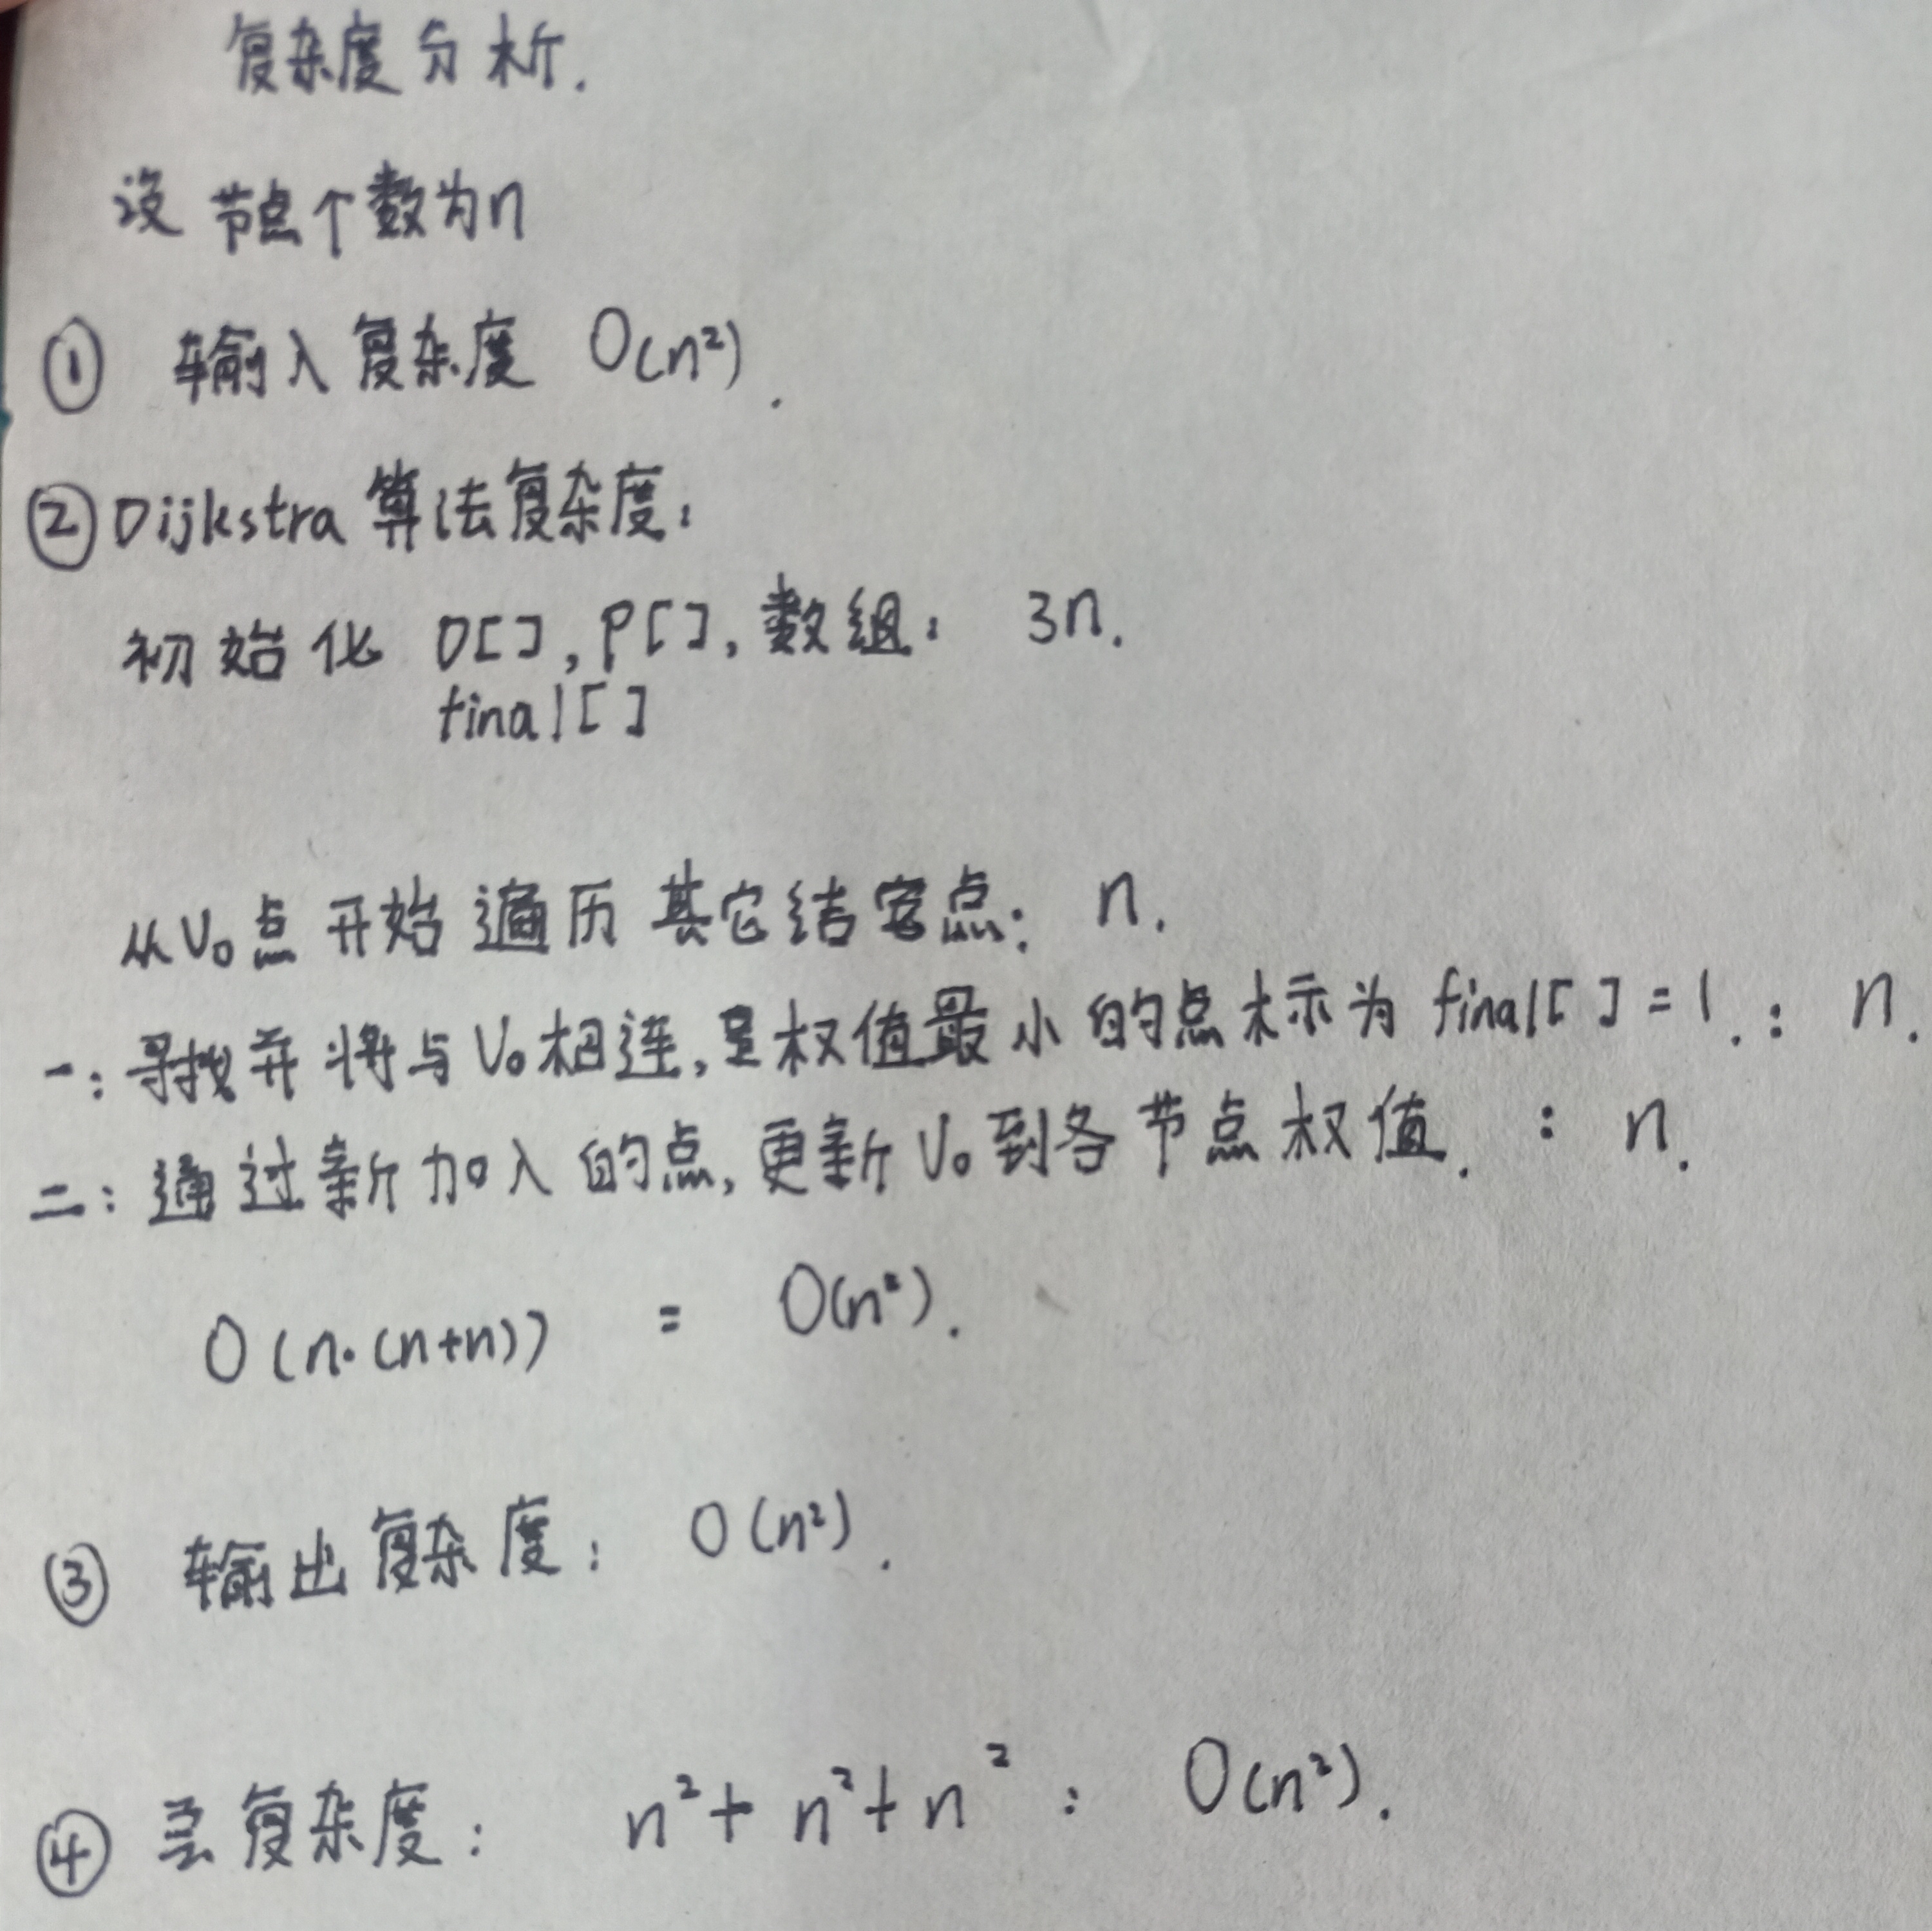 复杂度分析.
设 节点个数为n
① 输入复杂度 O(n²).
② Dijkstra 算法复杂度:
初始化 D[], P[], 数组: 3n.
final[]
从V₀点开始遍历其它结点: n.
一: 寻找并将与V₀相连, 且权值最小的点标为 final[ ] = 1. : n.
二: 通过新加入的点, 更新V₀到各节点权值. : n.
O(n·(n+n)) = O(n²).
③ 输出复杂度: O(n²).
④ 复杂度: n² + n² + n² : O(n²).